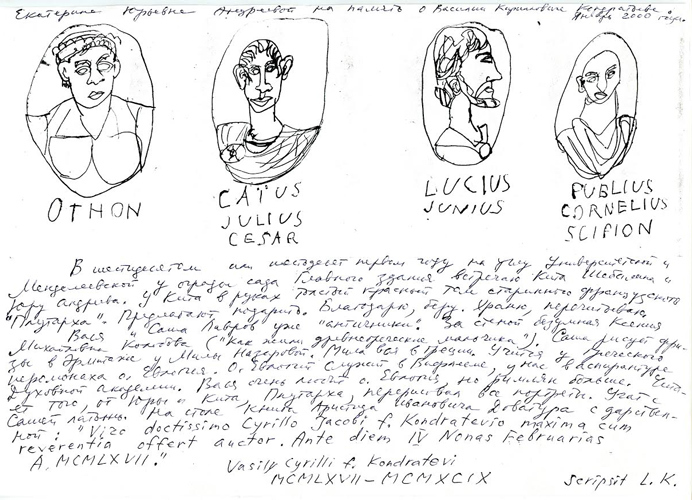 Екатерине Юрьевне Андреевой на память о Василии Кирилловиче Кондратьеве.
Января 2000 года.
OTHON
CAIUS
JULIUS
CESAR
LUCIUS
JUNIUS
PUBLIUS
CORNELIUS
SCIPION
В шестидесятом или шестьдесят первом году на углу Университетской и
Менделеевской у ограды сада Главного здания встречаю Кита
Юру Андреева. У Кита в руках толстый красный том старинного французского
"Плутарха". Предлагают подарить. Благодарю, беру. Храню, перечитываю.
Вася и Саша Лавров уже "античники". За стеной безумная Ксения
Михайловна ("как жили древнегреческие мальчики"). Саша рисует
зы в Эрмитаже у Милы Назаровой. Мила вся в Греции. Учится у греческого
иеромонаха о. Евлогия. О. Евлогий служит в у нас в аспирантуре
Духовной академии. Вася очень любит о. Евлогия, но римлян больше. Чита-
ет того от Юры и Кита, Плутарха, перерисовал все портреты. Учат с
Сашей латынь. На столе книга Аристида Ивановича Доватура с дарствен-
ной: "Viro doctissimo Cyrillo Jacobi f. Kondratevio maxima cum
reverentia offert auctor. Ante diem IV Nonas Februarias
A. MCMLXVII."
Vasily Cyrilli f. Kondratevi
MCMLXVII – MCMXCIX
Scripsit L. K.